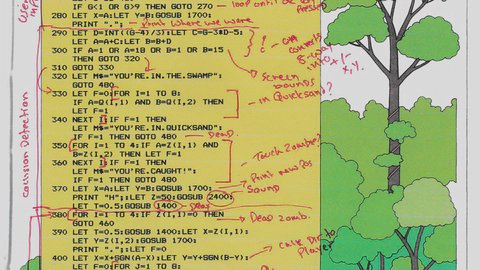 User
inp
0( 5) OR G)9 THEN GOTO 270
loop until
280 LET X=A:LET Y=B:GOSUB 1700:
PRINT ".";
Print where we were
pressed
290 LET D=INT((G-4)/3):LET C=G-3*D-5:
LET A=A+C:LET B=B+D
300 IF A=1 OR A=18 OR B=1 OR B=15
THEN GOTO 320
G converts
8-way
into +/-
x,y.
310 GOTO 330
Screen
bounds
320 LET M$="YOU'RE.IN.THE.SWAMP":
GOTO 480
330 LET F=0:FOR I=1 TO 8:
IF A=Q(I,1) AND B=Q(I,2) THEN
LET F=1
in Quicksand?
340 NEXT I:IF F=1 THEN
LET M$="YOU'RE.IN.QUICKSAND":
IF F=1 THEN GOTO 480
Dead
350 FOR I=1 TO 4:IF A=Z(I,1) AND
B=Z(I,2) THEN LET F=1
Touch Zombie?
360 NEXT I:IF F=1 THEN
LET M$="YOU'RE.CAUGHT!":
IF F=1 THEN GOTO 480
370 LET X=A:LET Y=B:GOSUB 1700:
Print new pos
PRINT "H";:LET Z=50:GOSUB 2400:
Sound
LET T=0.5:GOSUB 1400
380 FOR I=1 TO 4:IF Z(I,1)=0 THEN
GOTO 460
Dead zomb.
390 LET T=0.5:GOSUB 1400:LET X=Z(I,1):
LET Y=Z(I,2):GOSUB 1700:
PRINT ".";:LET F=0
400 LET X=X+SGN(A-X):LET Y=Y+SGN(B-Y):
Calc Dir to
Player
LET F=0:FOR J=1 TO 8:
Collision Detection